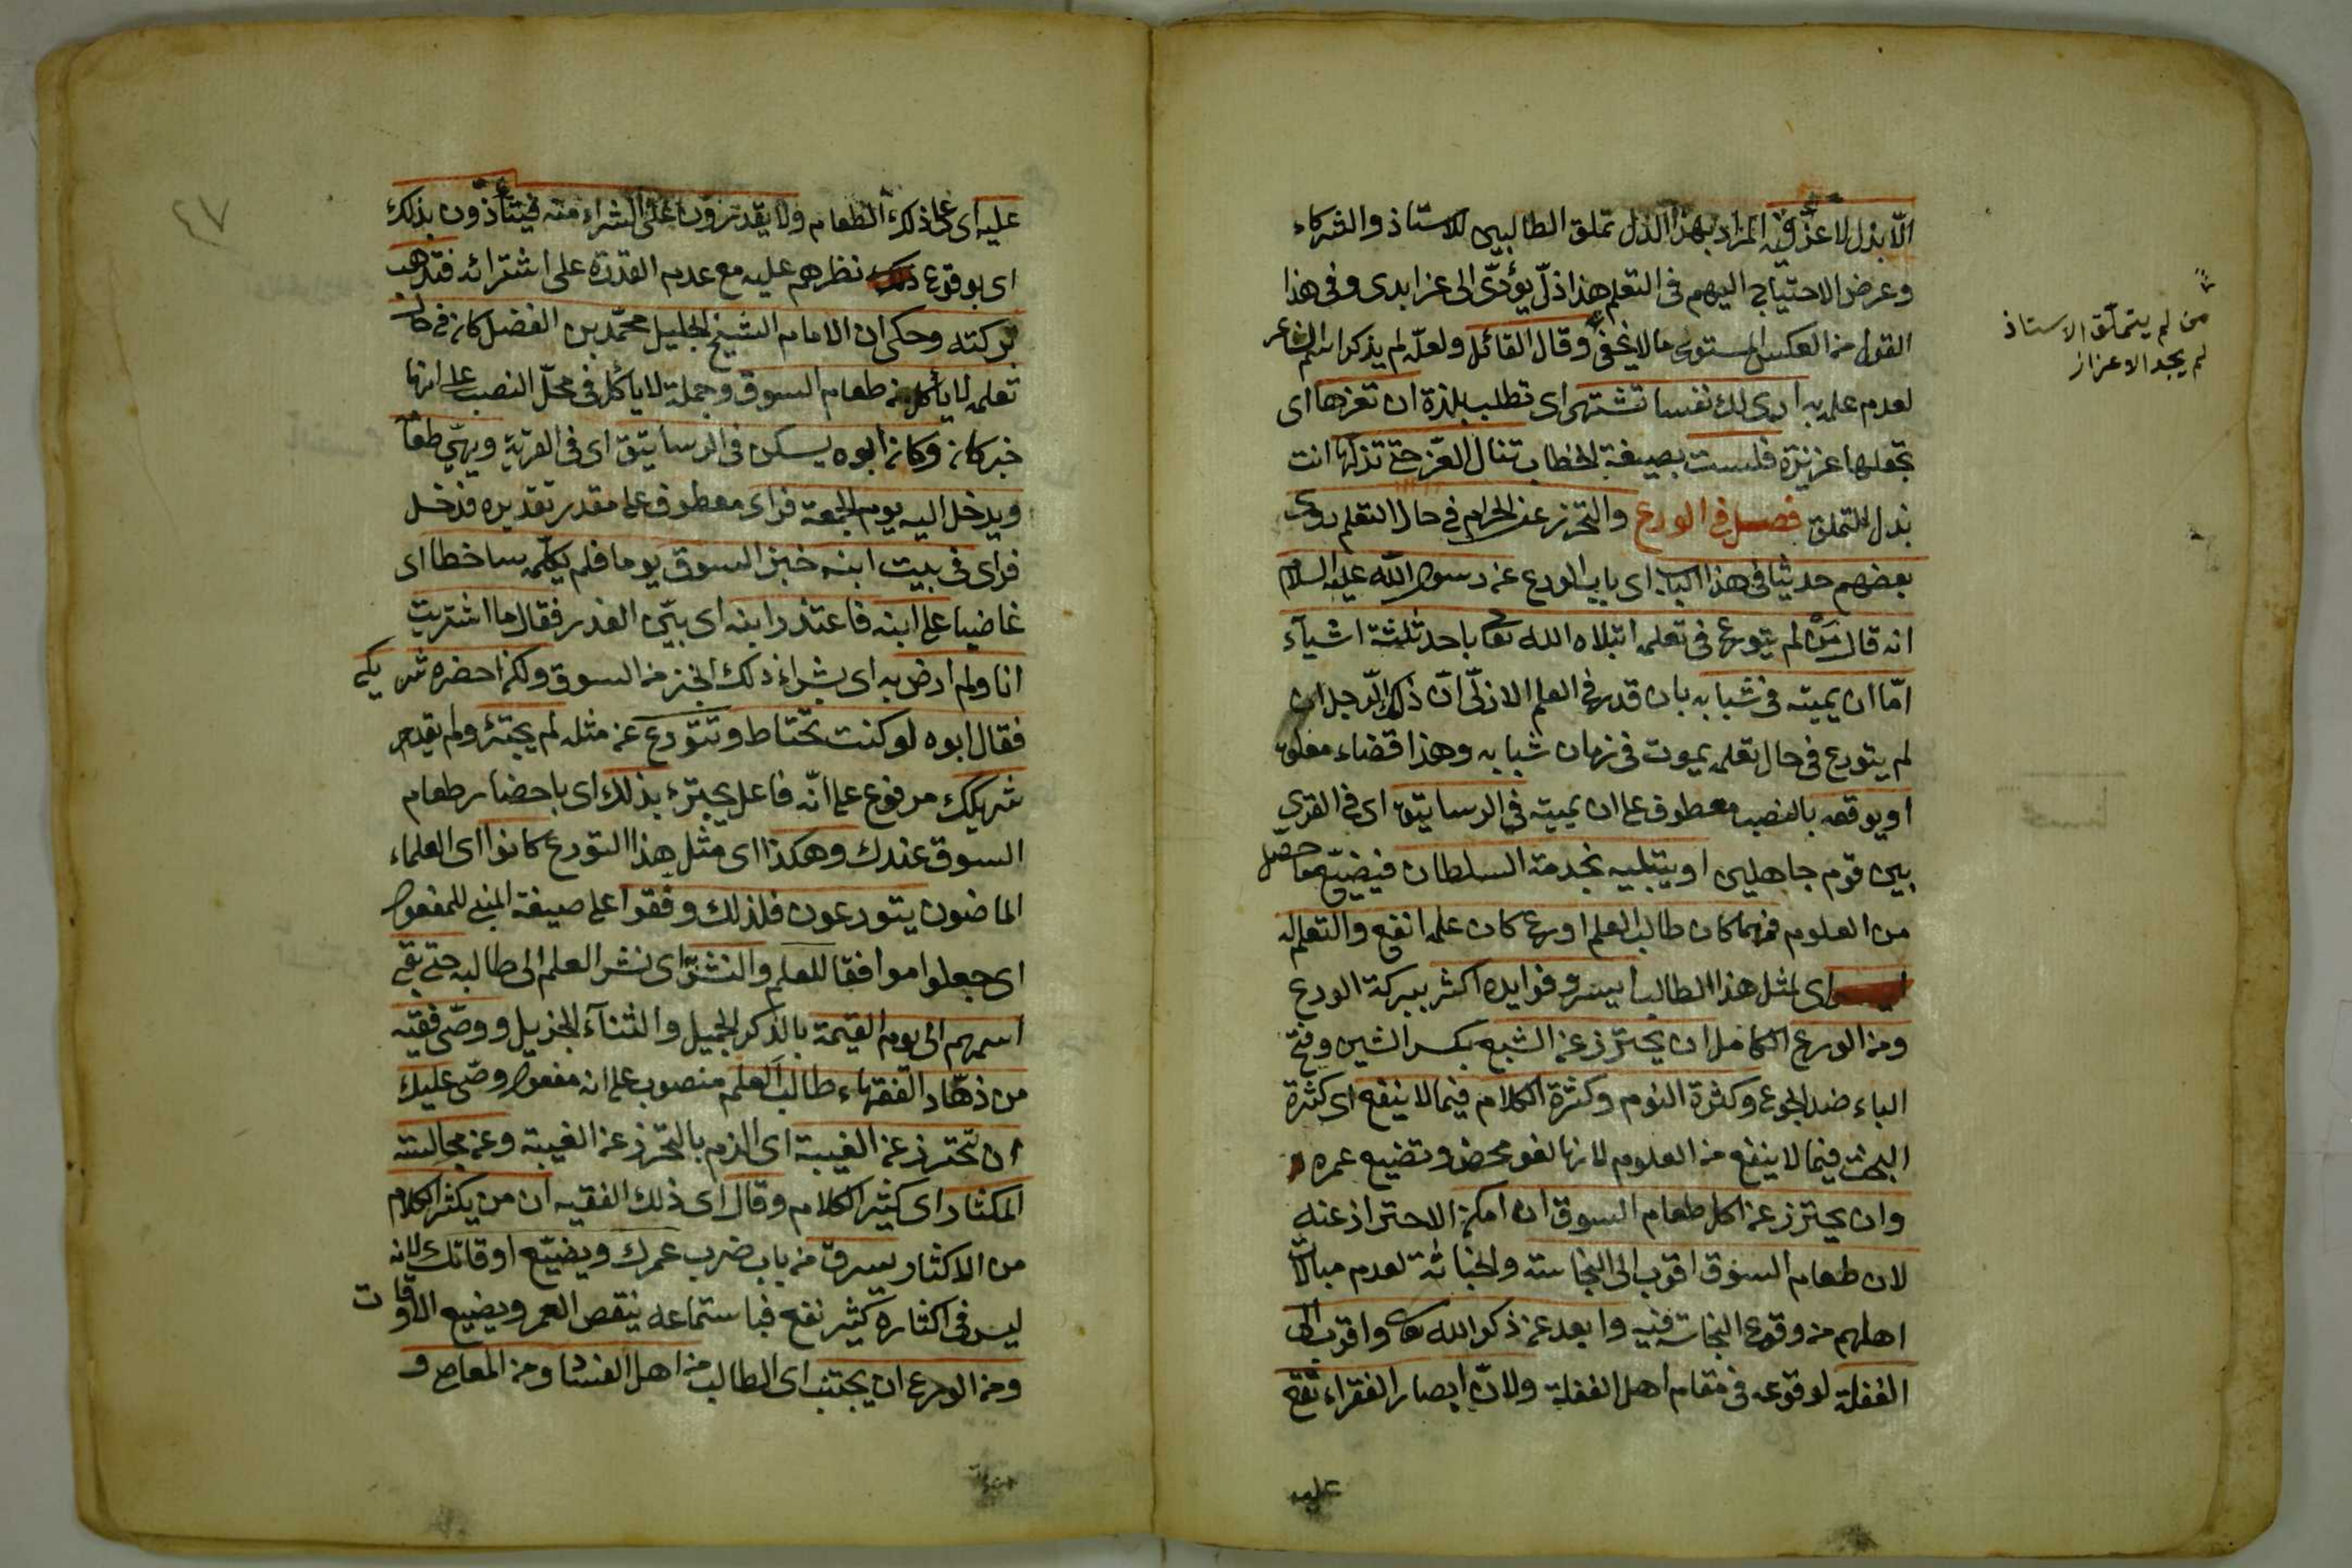 الا بذل لا عز فيه المراد بهذا الذل تملق الطالبين للاستاذ والشركاء
وعرض الاحتياج اليهم في التعلم هذا ذلّ يؤدّى الى عز ابدى وفي هذا
القول من العكس المستوى ما لا يخفى وقال القائل ولعلّه لم يذكر اسم الشاعر
لعدم علمه به ارى لك نفسا تشتهى اى تطلب بلذة ان تعزها اى
تجعلها عزيزة فلست بصيغة الخطاب تنال العزّ حتى تذلها انت
بذل التملق فصل في الورع والتحرز عن الحرام في حال التعلم روى
بعضهم حديثا في هذا الباب اى باب الورع عن رسول الله عليه السلام
انه قال مَنْ لم يتورع في تعلمه ابتلاه الله تعا باحد ثلثة اشيآء
امّا ان يميته في شبابه بان قدر في العلم الازلّى انّ ذلك الرّجل ان
لم يتورع في حال تعلمه يموت في زمان شبابه وهذا قضاء معلق
او يوقعه بالنصب معطوف على ان يميته في الرساتيق اى في القرى
بين قوم جاهلين او يبتليه بخدمة السلطان فيضيّع ما حصل
من العلوم فمهما كان طالب العلم اورع كان علمه انفع والتعلم له
اى لمثل هذا الطالب ايسر وفوايده اكثر ببركة الورع
ومن الورع الكامل ان يحترز عن الشبع بكسر الشين وفتح
الباء ضد الجوع وكثرة النوم وكثرة الكلام فيما لا ينفع اى كثرة
البحث فيما لا ينفع من العلوم لانها لغو محض وتضيع عمره
وان يحترز عن اكل طعام السوق ان امكن الاحتراز عنه
لان طعام السوق اقرب الى النجاسة والخباثة لعدم مبالات
اهلهم من وقوع النجاسة فيه وابعد عن ذكر الله تعا واقرب الى
الغفلة لوقوعه في مقام اهل الغفلة ولانّ ابصار الفقراء تقع
عليه
من لم يتملّق الاستاذ
لم يجد الاعزاز
٤٧
عليه اى على ذلك الطعام ولا يقدرون على الشراء منه فيتأذّون بذلك
اى بوقوع نظرهم عليه مع عدم القدرة على اشترائه فتذهب
بركته وحكى ان الامام الشيخ الجليل محمّد بن الفضل كان في حال
تعلمه لا يأكل من طعام السوق وجملة لا يأكل في محلّ النصب على انها
خبر كان وكان ابوه يسكن في الرساتيق اى في القرية ويهيّى طعامه
ويدخل اليه يوم الجمعة فراى معطوف على مقدر تقديره فدخل
فراى في بيت ابنه خبز السوق يوما فلم يكلّمه ساخطا اى
غاضبا على ابنه فاعتذر ابنه اى بيّن العذر فقال ما اشتريت
انا ولم ارض به اى بشراء ذلك الخبز من السوق ولكن احضره شريكى
فقال ابوه لو كنت تحتاط وتتورع عن مثله لم يجترئ ولم يقدم
شريكك مرفوع على انّه فاعل يجترء بذلك اى باحضار طعام
السوق عندك وهكذا اى مثل هذا التورع كانوا اى العلماء
الماضون يتورعون فلذلك وفقوا على صيغة المبنى للمفعول
اى جعلوا موافقا للعلم والنشر اى نشر العلم الى طالبه حتى بقى
اسمهم الى يوم القيمة بالذكر الجميل والثنآء الجزيل ووصّى فقيه
من زهّاد الفقهاء طالب العلم منصوب على انه مفعول وصّى عليك
ان تحترز عن الغيبة اى الزم بالتحرّز عن الغيبة وعن مجالسة
المكثار اى كثير الكلام وقال اى ذلك الفقيه ان من يكثر الكلام
من الاكثار يسرق من باب ضرب عمرك ويضيّع اوقاتك لانه
ليس في اكثاره كثير نفع فباستماعه ينقص العمر ويضيع الاوقات
ومن الورع ان يجتنب اى الطالب من اهل الفساد ومن المعاصى و